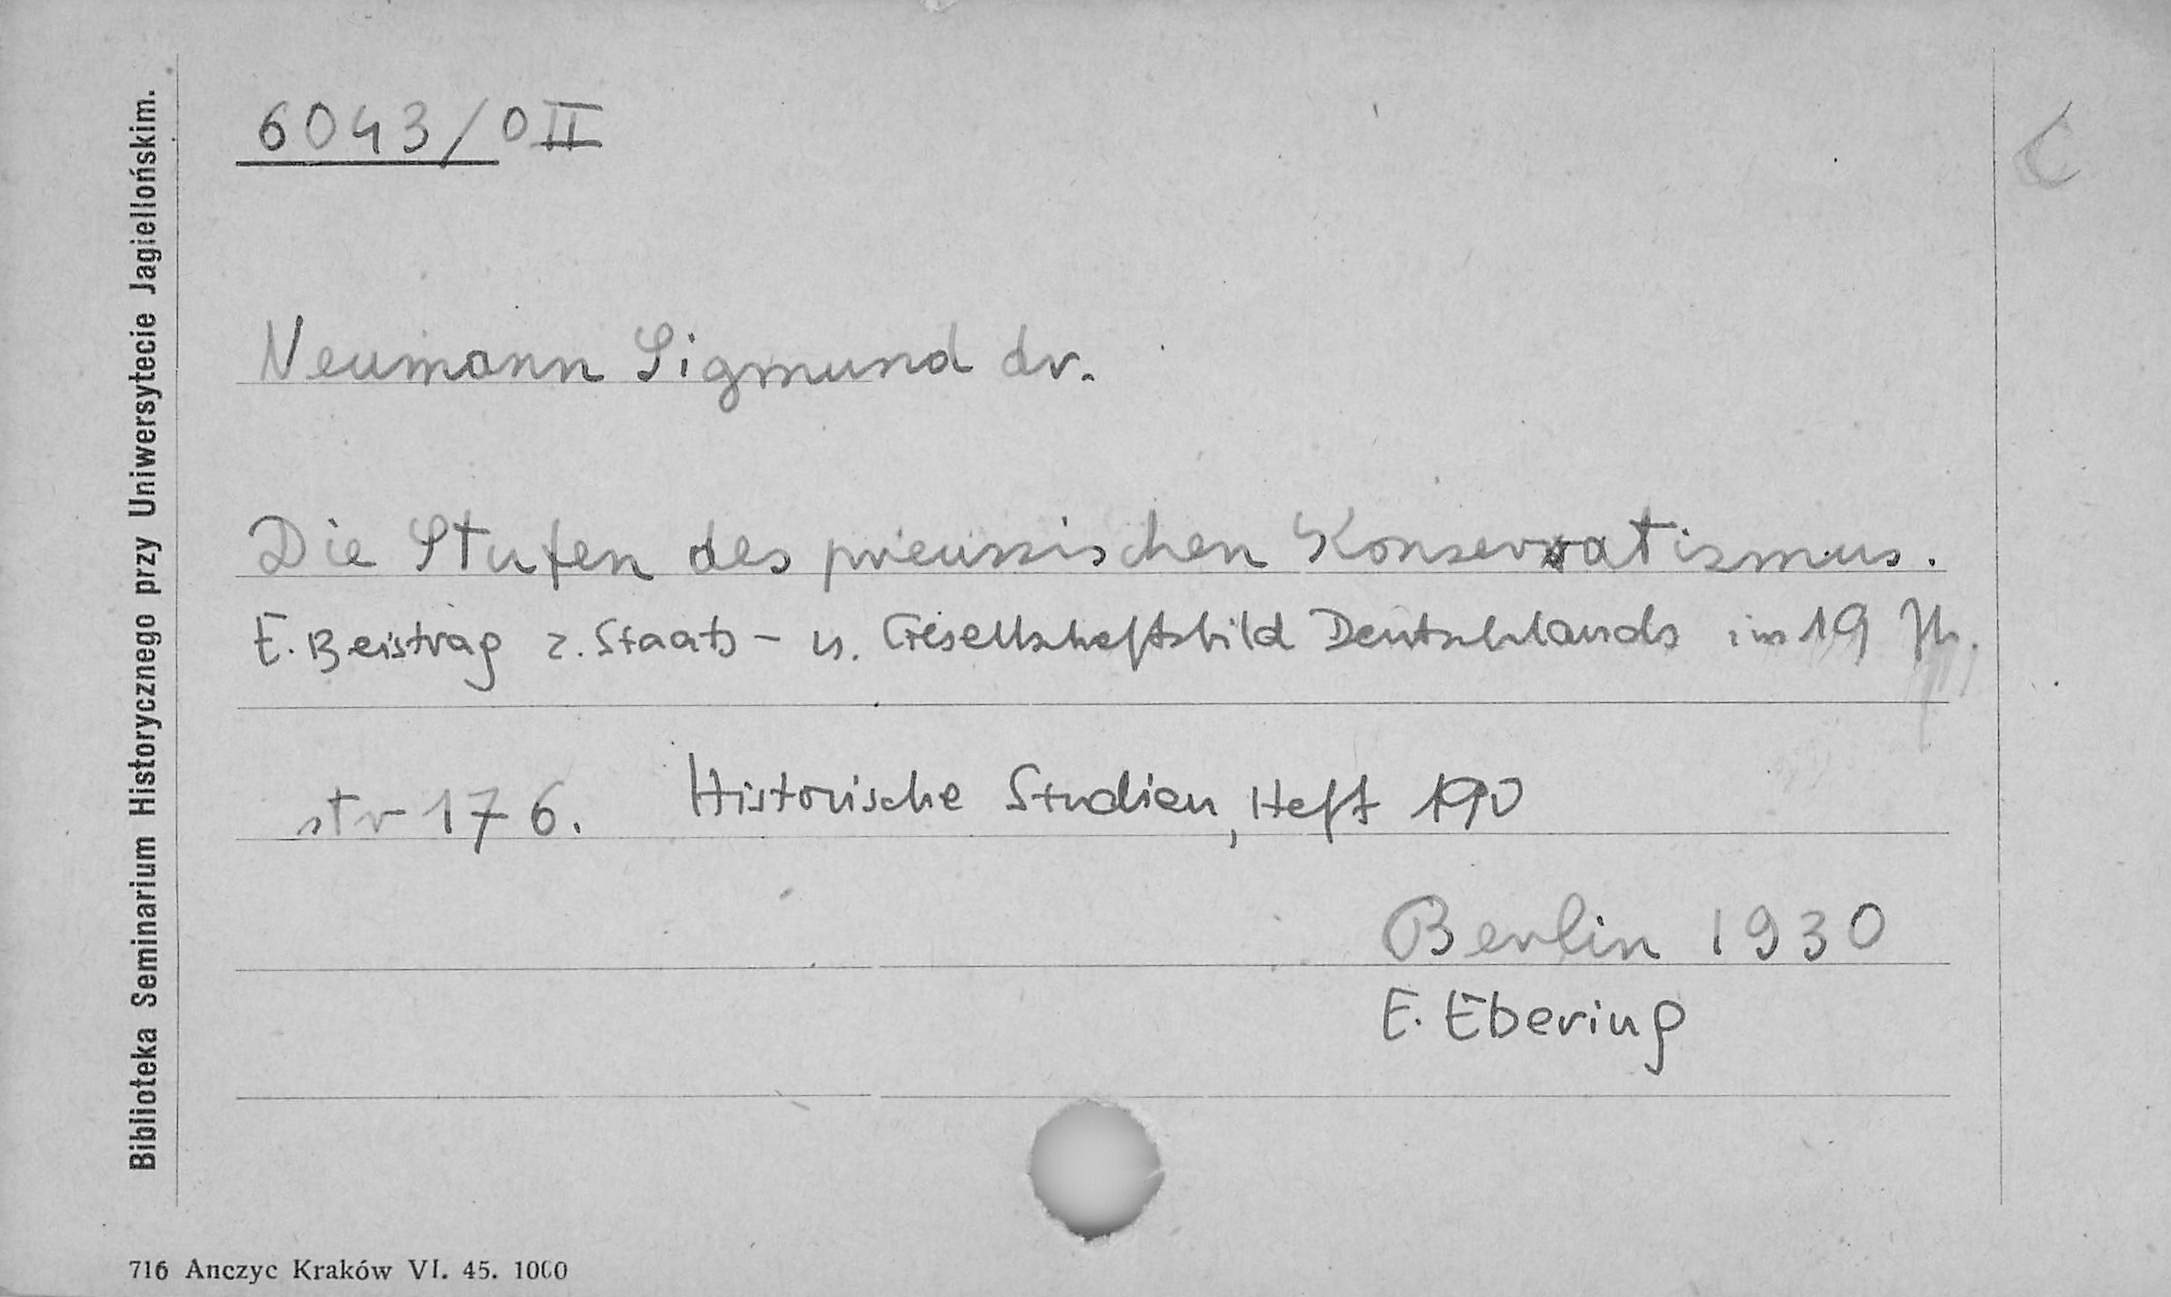 6043/0II
Neumann Sigmund dr.
Die Stufen des preussischen Konservatismus.
E. Beitrag z. Staats- u. Gesellschaftsbild Deutschlands im 19 Jh.
str 176. Historische Studien, Heft 190
Berlin 1930
E. Ebering
Biblioteka Seminarium Historycznego przy Uniwersytecie Jagiellońskim.
716 Anczyc Kraków VI. 45. 1000